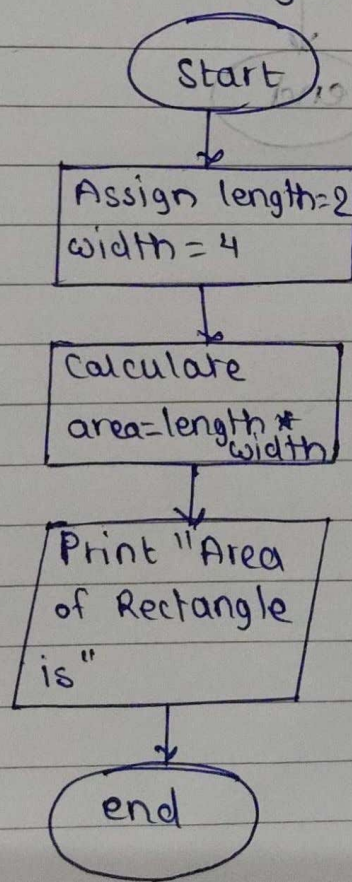 Start
Assign length=2
width = 4
Calculate
area=length *
width
Print "Area
of Rectangle
is"
end